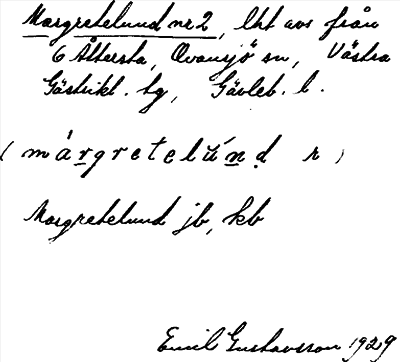 Margretelund nr 2, lht avs från
6 Åttersta, Ovansjö sn, Västra
Gästrikl. tg, Gävleb. l.
(márgretelún̲d r)
Margretelund jb, kb
Emil Gustavsson 1929